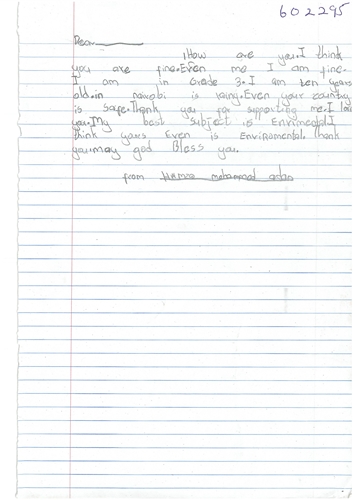 602295
Dear
How are you.I think
you are fine.Even me I am fine.
I am in Grade 3.I am ten years
old.in nairobi is rainy.Even your country
is safe.Thank you for supporting me.I love
you.My best subject is Envirmental.I
think yours Even is Enviromental.Thank
you.may god Bless you.
from Hamza mohammad adan